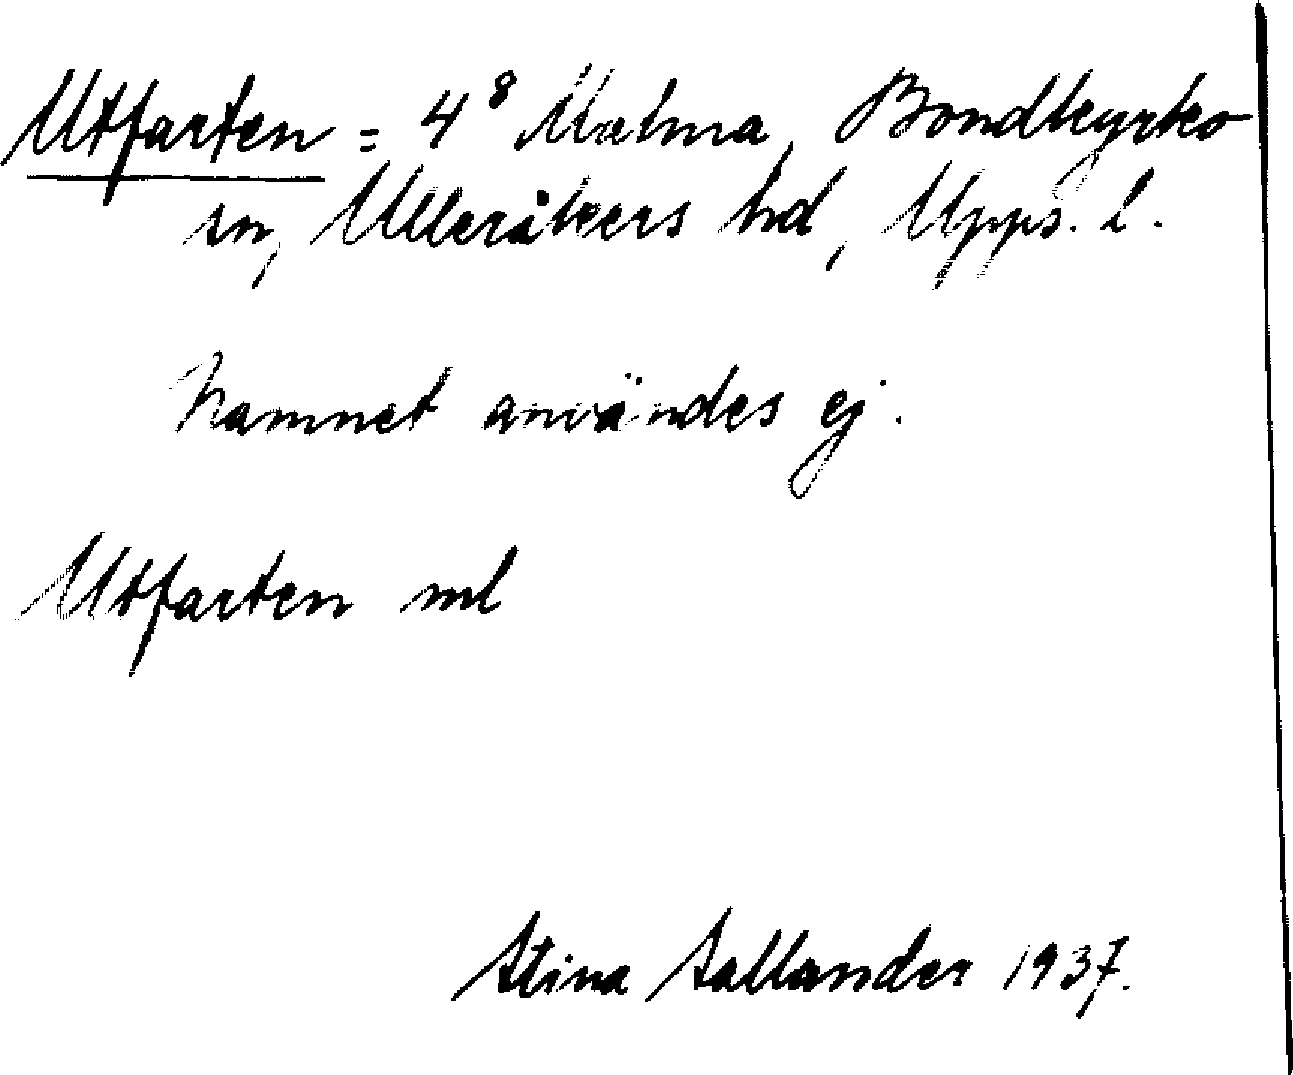 Utfarten = 4⁸ Malma, Bondkyrko
sn, Ulleråkers hd, Upps. l.
Namnet användes ej.
Utfarten ml
Stina Sallander 1937.